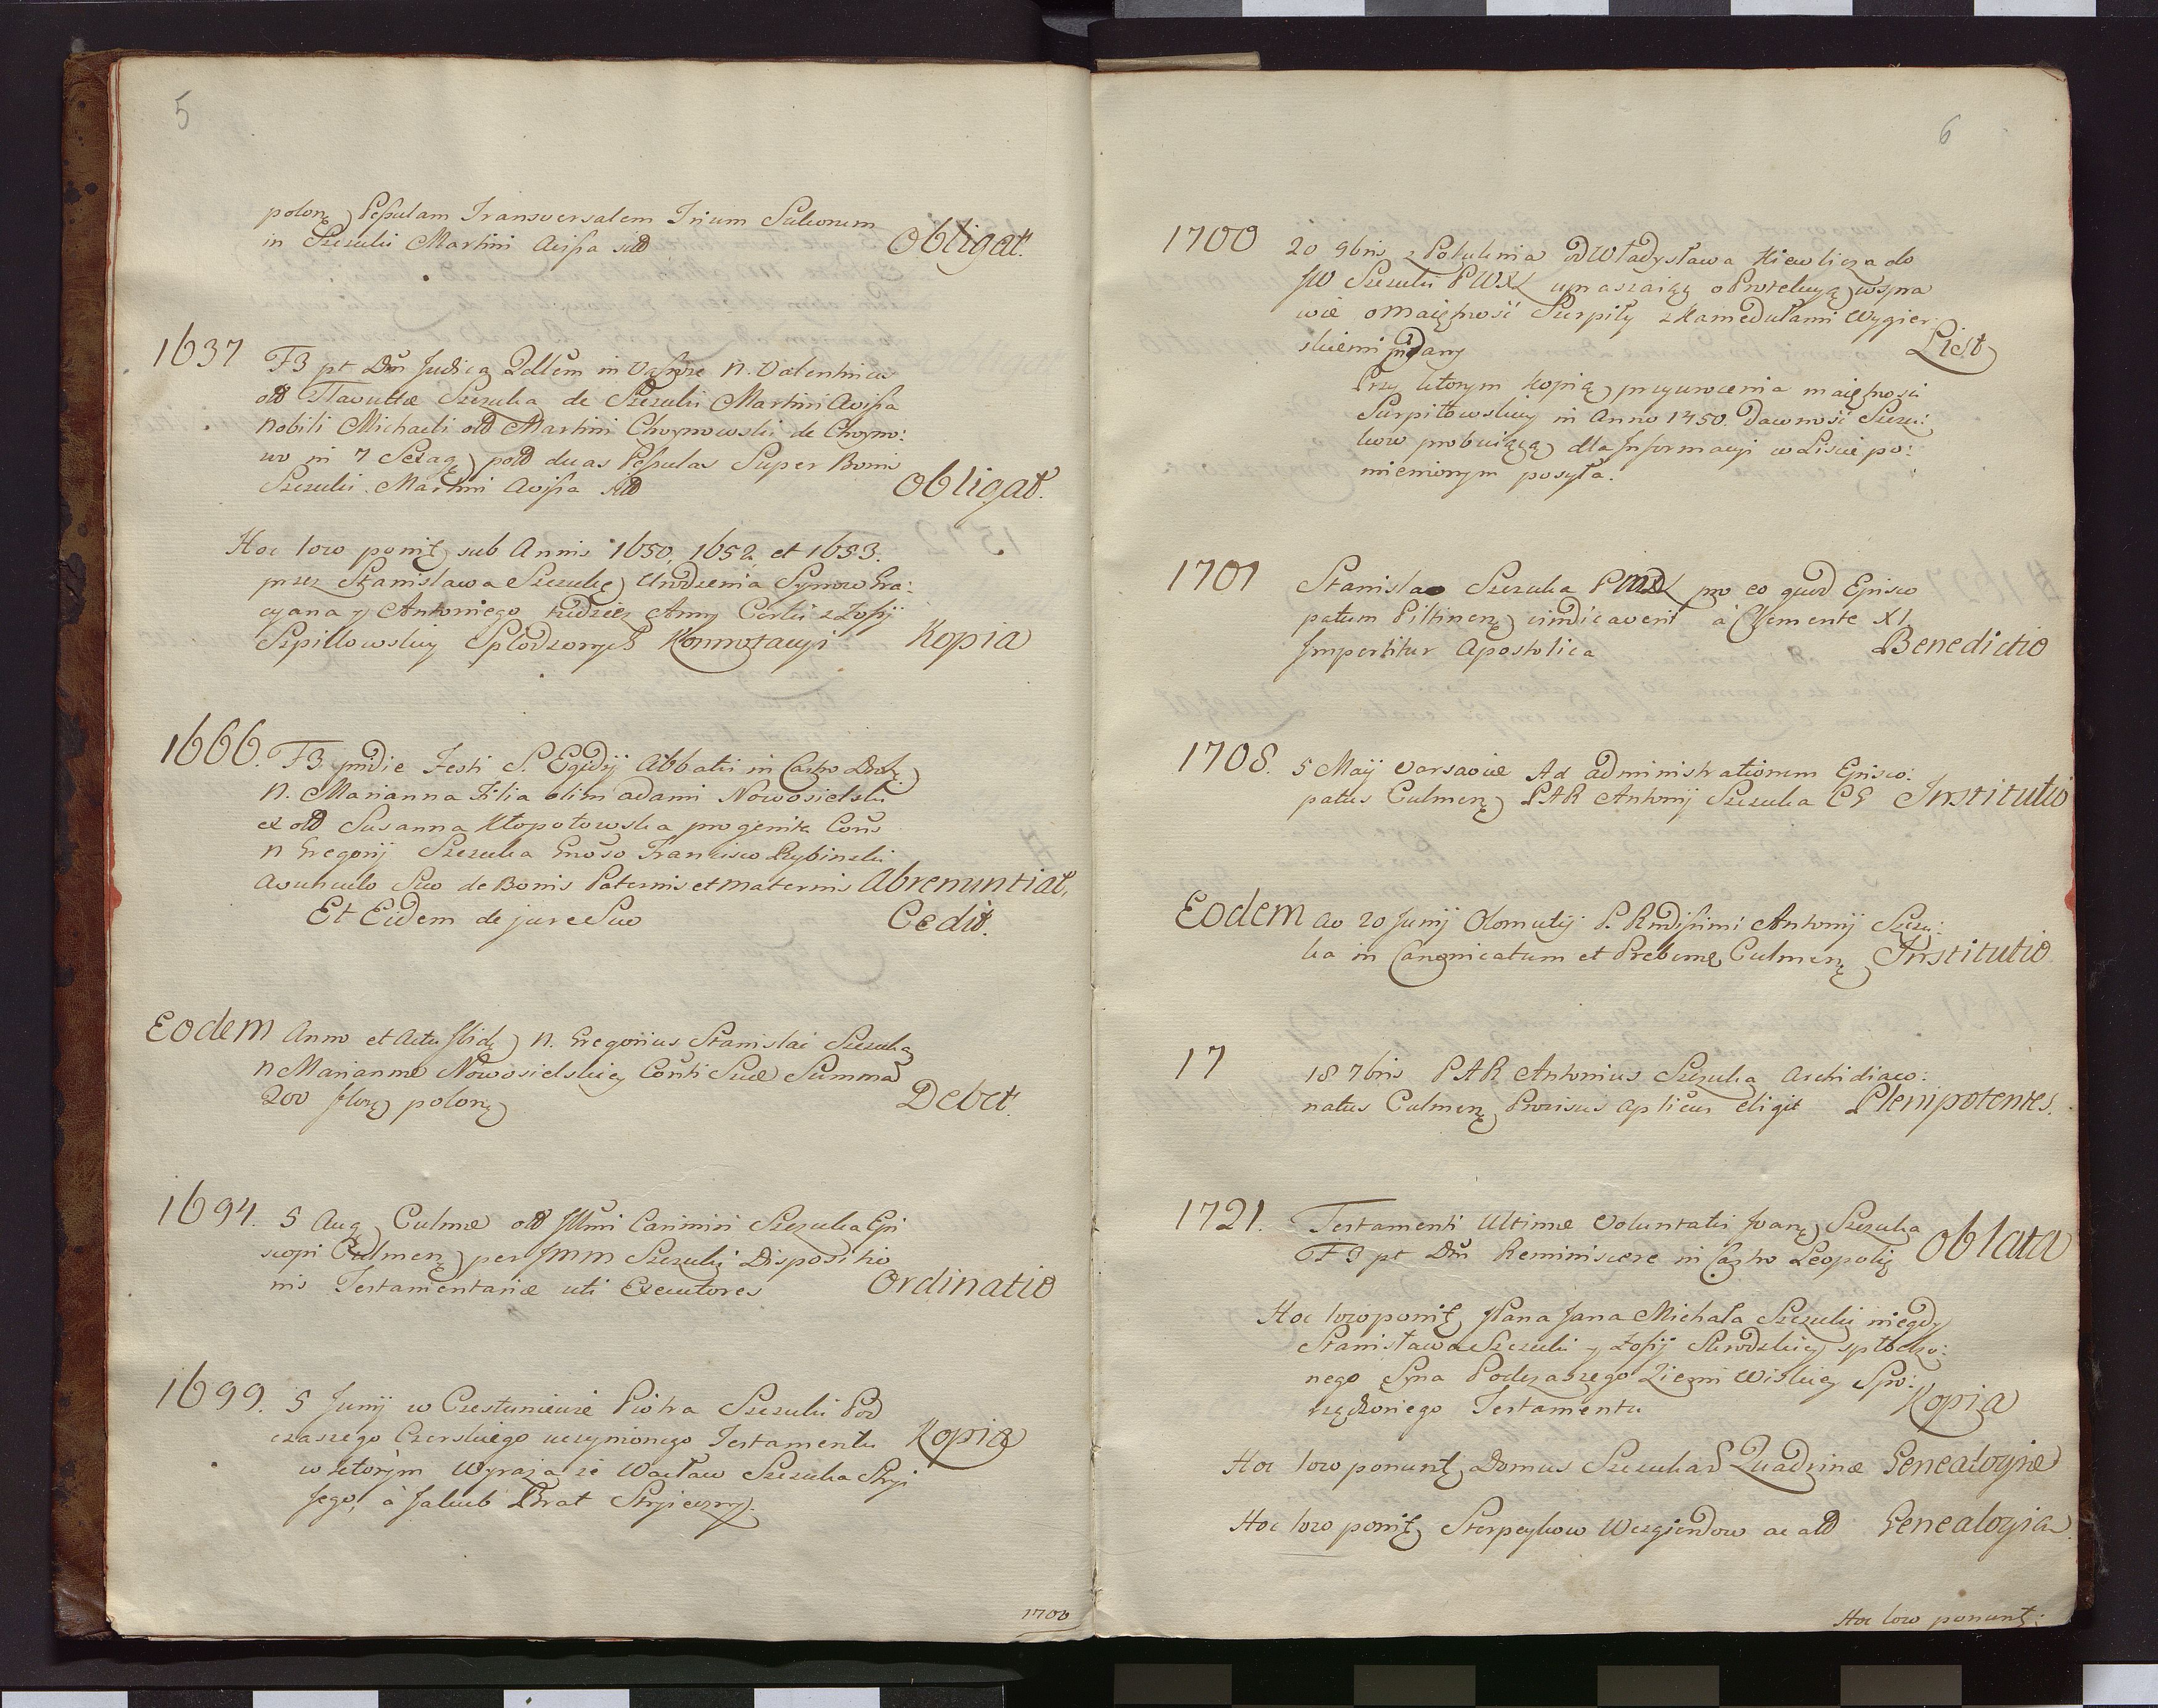 5
polon Pessulam Transversalem Trium Sulcorum
in Szczuki Martini Avissa sitd Obligat.
1637 F3 pt Dm Judica Qdllem in Vassosze N. Valentinus
old Stawutha Szczuka de Szczuki Martini Avissa
Nobili Michaeli old Martini Choynowski de Choyno:
wo in 7 Sexag pold duas Pessulas Super Bonis
Szczuki Martini Avissa sitd Obligat.
Hoc loco ponit sub Annis 1650, 1652 et 1653.
przez Stanisława Szczukę Urodzenia Synow Gra:
cyana y Antoniego tudziez Anny Corki z Zofij
Szpillowskiy Spłodzonych Konnotacyi Kopia
1666. F3 pridie Festi S. Egidij Abbatis in Castro
N. Marianna Filia olim Adami Nowosielski
ex old Susanna Kłopotowska progenita Cons
N Gregorij Szczuka Gnoso Francisco Rybinski
Avunculo Suo de Bonis Paternis et maternis Abrenuntiat,
Et Eidem de jure Suo Cedit.
Eodem Anno et Actu N. Gregorius Stanislai Szczuka
N Mariannæ Nowosielskiey Conti Suæ Summa
200 flor polon Debet.
1694. 5 Aug Culmæ old Illmi Casimiri Szczuka Epi
scopi Culmen per Szczuki Dispositio
nis Testamentariæ uti Executores Ordinatio
1699. 5 Junij w Piotra Szczuki Pod
czaszego Czerskiego uczynionego Testamentu Kopia
w ktorym Wyraza ze Wacław Szczuka Stryi
Jego, à Jakub Brat Stryieczny.
1700
6
1700 20 9bris z Władysława Kiewlicza do
JW Szczuki PWXL upraszaiąc o Protekcyą w spra
wie o maiętnosć Surpiły z Kamedułami Wygier:
skiemi pisany List
Przy ktorym kopią przywrocenia maiętnosci
Surpiłowskiey in Anno 1450. Dawnosć Szczu:
kow probuiącą dla Informacyi w Liscie po:
mienionym posyła.
1701 Stanislao Szczuka pro eo quod Episco
patum Piltinen vindicaverit à Clemente XI,
Impertitur Apostolica Benedictio
1708. 5 Maij Varsaviæ Ad administrationem Episco:
patus Culmen PAR Antonij Szczuka CE Institutio
Eodem Ao 20 Junij Olomutij P. Rndissimi Antonij Szczu:
ka in Canonicatum et Prebend Culmen Institutio
17 18 7bris PAR Antonius Szczuka Archidiaco:
natus Culmen Provisus Aplicus eligit Plenipotentes.
1721. Testamenti Ultimæ Voluntatis Joan Szczuka
F3 pt Dm Reminiscere in Castro Leopoli Oblata
Hoc loco ponit Pana Jana Michała Szczuki niegdy
Stanisława Szczuki y Zofij Skrodzkiey spłodzo:
nego Syna Podczaszego Ziemi Wiskiey Spo:
rządzonego Testamentu Kopia
Hoc loco ponunt Domus Szczukar Quadrinæ Genealogiæ
Hoc loco ponit Sterpeykow Wizgierdow ac ald Genealogia
Hoc loco ponunt: